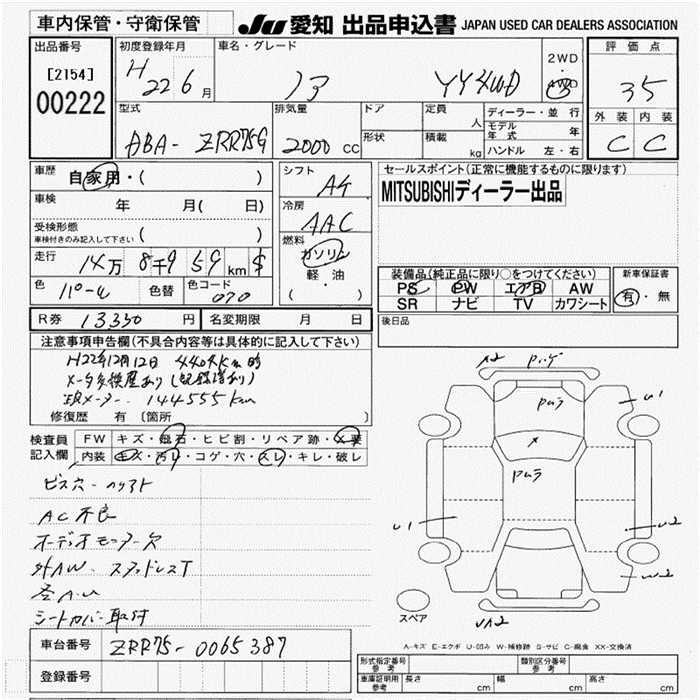 車内保管・守衛保管 JU 愛知 出品申込書 JAPAN USED CAR DEALERS ASSOCIATION
出品番号 初度登録年月 車名・グレード 2WD ・ 4WD 評価点
[2154] H22 6月 YY 4WD 35
00222
型式 排気量 ドア 定員 人 ディーラー・並行 外装 内装
ABA- ZRR75G 2000 CC 形状 積載 kg モデル年式 年 C C
ハンドル 左・右
車歴 自家用・( ) シフト A4 セールスポイント(正常に機能するものに限ります)
車検 年 月( 日) 冷房 AAC MITSUBISHIディーラー出品
受検形態 車検付きのみ記入して下さい ( ) 燃料 ガソリン
走行 14万 8千9 59 km $ 軽・油 装備品(純正品に限り○をつけてください) 新車保証書
色 パール 色替 色コード 070 ( ・ ) PS PW エアB AW 有・無
SR ナビ TV カワシート
R券 13350 円 名変期限 月 日 後日品
注意事項申告欄(不具合内容等は具体的に記入して下さい)
H22年12月12日 4404km時
メータ交換歴あり(記録簿あり)
現メーター 144555km
修復歴 有 〔箇所 〕
検査員記入欄 FW キズ・飛石・ヒビ割・リペア跡・X要
内装 キズ・汚レ・コゲ・穴・スレ・キレ・破レ
ビス穴
AC不良
オーディオモニター欠
外AW スタッドレスT
シートカバー取付
A2
U1
X
U1
U2
W2
スペア
A-キズ E-エクボ U-凹み W-補修跡 S-サビ C-腐食 XX-交換済
車台番号 ZRR75-0065387
登録番号
形式指定番号 参考 類別区分番号 参考
車庫証明用 参考 長さ cm 幅 cm 高さ cm